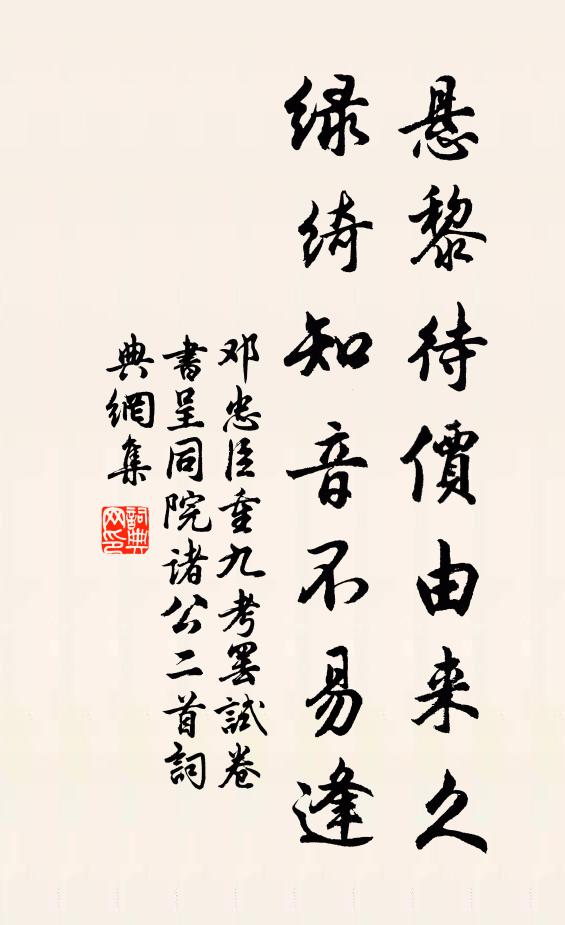 悬黎待價由来久
绿绮知音不易逢
邓忠臣重九考罢試卷
書呈同院诸公二首詞
典網集
詞典
网印